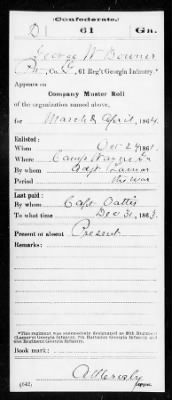 (Confederate.)
D 61 Ga.
George W Downer
Co. , 61 Reg't Georgia Infantry.*
Appears on
Company Muster Roll
of the organization named above,
for March & April, 1864.
Enlisted:
When Oct 29, 1861.
Where Camp
By whom Capt Lamar
Period the war
Last paid:
By whom Capt Cattis
To what time Dec 31, 1863.
Present or absent Present
Remarks:
*This regiment was successively designated as
7th Battalion Georgia Infantry and
61st Regiment Georgia Infantry.
Book mark:
(642)
Copyist.